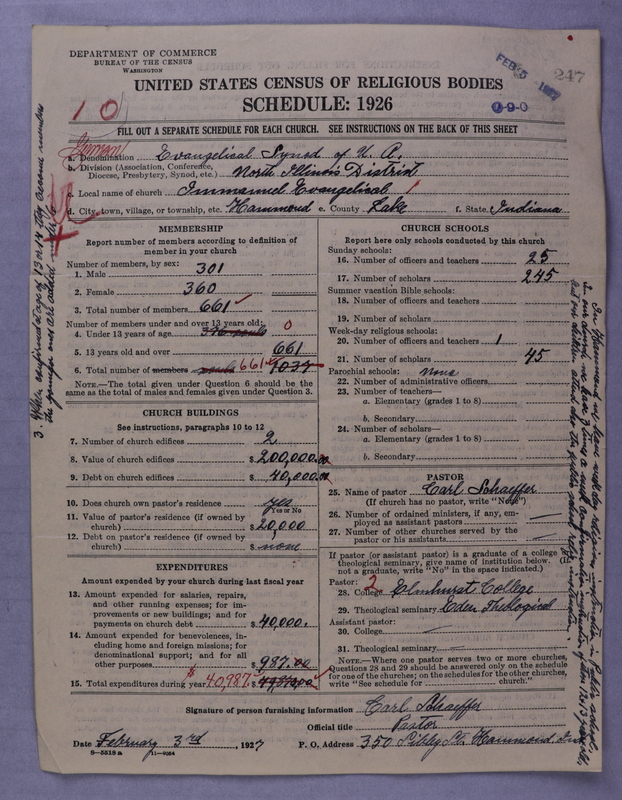 DEPARTMENT OF COMMERCE
BUREAU OF THE CENSUS
WASHINGTON
FEB 5 1927
247
UNITED STATES CENSUS OF RELIGIOUS BODIES
SCHEDULE: 1926
190
10
FILL OUT A SEPARATE SCHEDULE FOR EACH CHURCH. SEE INSTRUCTIONS ON THE BACK OF THIS SHEET
German
a. Denomination Evangelical Synod of N. A.
b. Division (Association, Conference, Diocese, Presbytery, Synod, etc.) North Illinois District
c. Local name of church Immanuel Evangelical
d. City, town, village, or township, etc. Hammond e. County Lake f. State Indiana
MEMBERSHIP
Report number of members according to definition of member in your church
Number of members, by sex:
1. Male 301
2. Female 360
3. Total number of members 661
Number of members under and over 13 years old:
4. Under 13 years of age 0
5. 13 years old and over 661
6. Total number of members 661 1037
NOTE.—The total given under Question 6 should be the same as the total of males and females given under Question 3.
CHURCH BUILDINGS
See instructions, paragraphs 10 to 12
7. Number of church edifices 2
8. Value of church edifices $ 200,000.00
9. Debt on church edifices $ 40,000.00
10. Does church own pastor's residence yes
Yes or No
11. Value of pastor's residence (if owned by church) $ 20,000
12. Debt on pastor's residence (if owned by church) $ none
EXPENDITURES
Amount expended by your church during last fiscal year
13. Amount expended for salaries, repairs, and other running expenses; for improvements or new buildings; and for payments on church debt $ 40,000.
14. Amount expended for benevolences, including home and foreign missions; for denominational support; and for all other purposes $ 987.00
15. Total expenditures during year $ 40,987.
CHURCH SCHOOLS
Report here only schools conducted by this church
Sunday schools:
16. Number of officers and teachers 25
17. Number of scholars 245
Summer vacation Bible schools:
18. Number of officers and teachers
19. Number of scholars
Week-day religious schools:
20. Number of officers and teachers 1
21. Number of scholars 45
Parochial schools: none
22. Number of administrative officers
23. Number of teachers—
a. Elementary (grades 1 to 8)
b. Secondary
24. Number of scholars—
a. Elementary (grades 1 to 8)
b. Secondary
PASTOR
25. Name of pastor Carl Schaeffer
(If church has no pastor, write "No")
26. Number of ordained ministers, if any, employed as assistant pastors —
27. Number of other churches served by the pastor or his assistants —
If pastor (or assistant pastor) is a graduate of a college or theological seminary, give name of institution below. (If not a graduate, write "No" in the space indicated.)
Pastor:
28. College 2 Elmhurst College
29. Theological seminary Eden Theological
Assistant pastor:
30. College —
31. Theological seminary —
NOTE.—Where one pastor serves two or more churches, Questions 28 and 29 should be answered only on the schedule for one of the churches; on the schedules for the other churches, write "See schedule for church."
Signature of person furnishing information Carl Schaeffer
Official title Pastor
Date February 3rd, 1927 P. O. Address 350 Sibley St. Hammond Ind
8—5518 a 11—9064